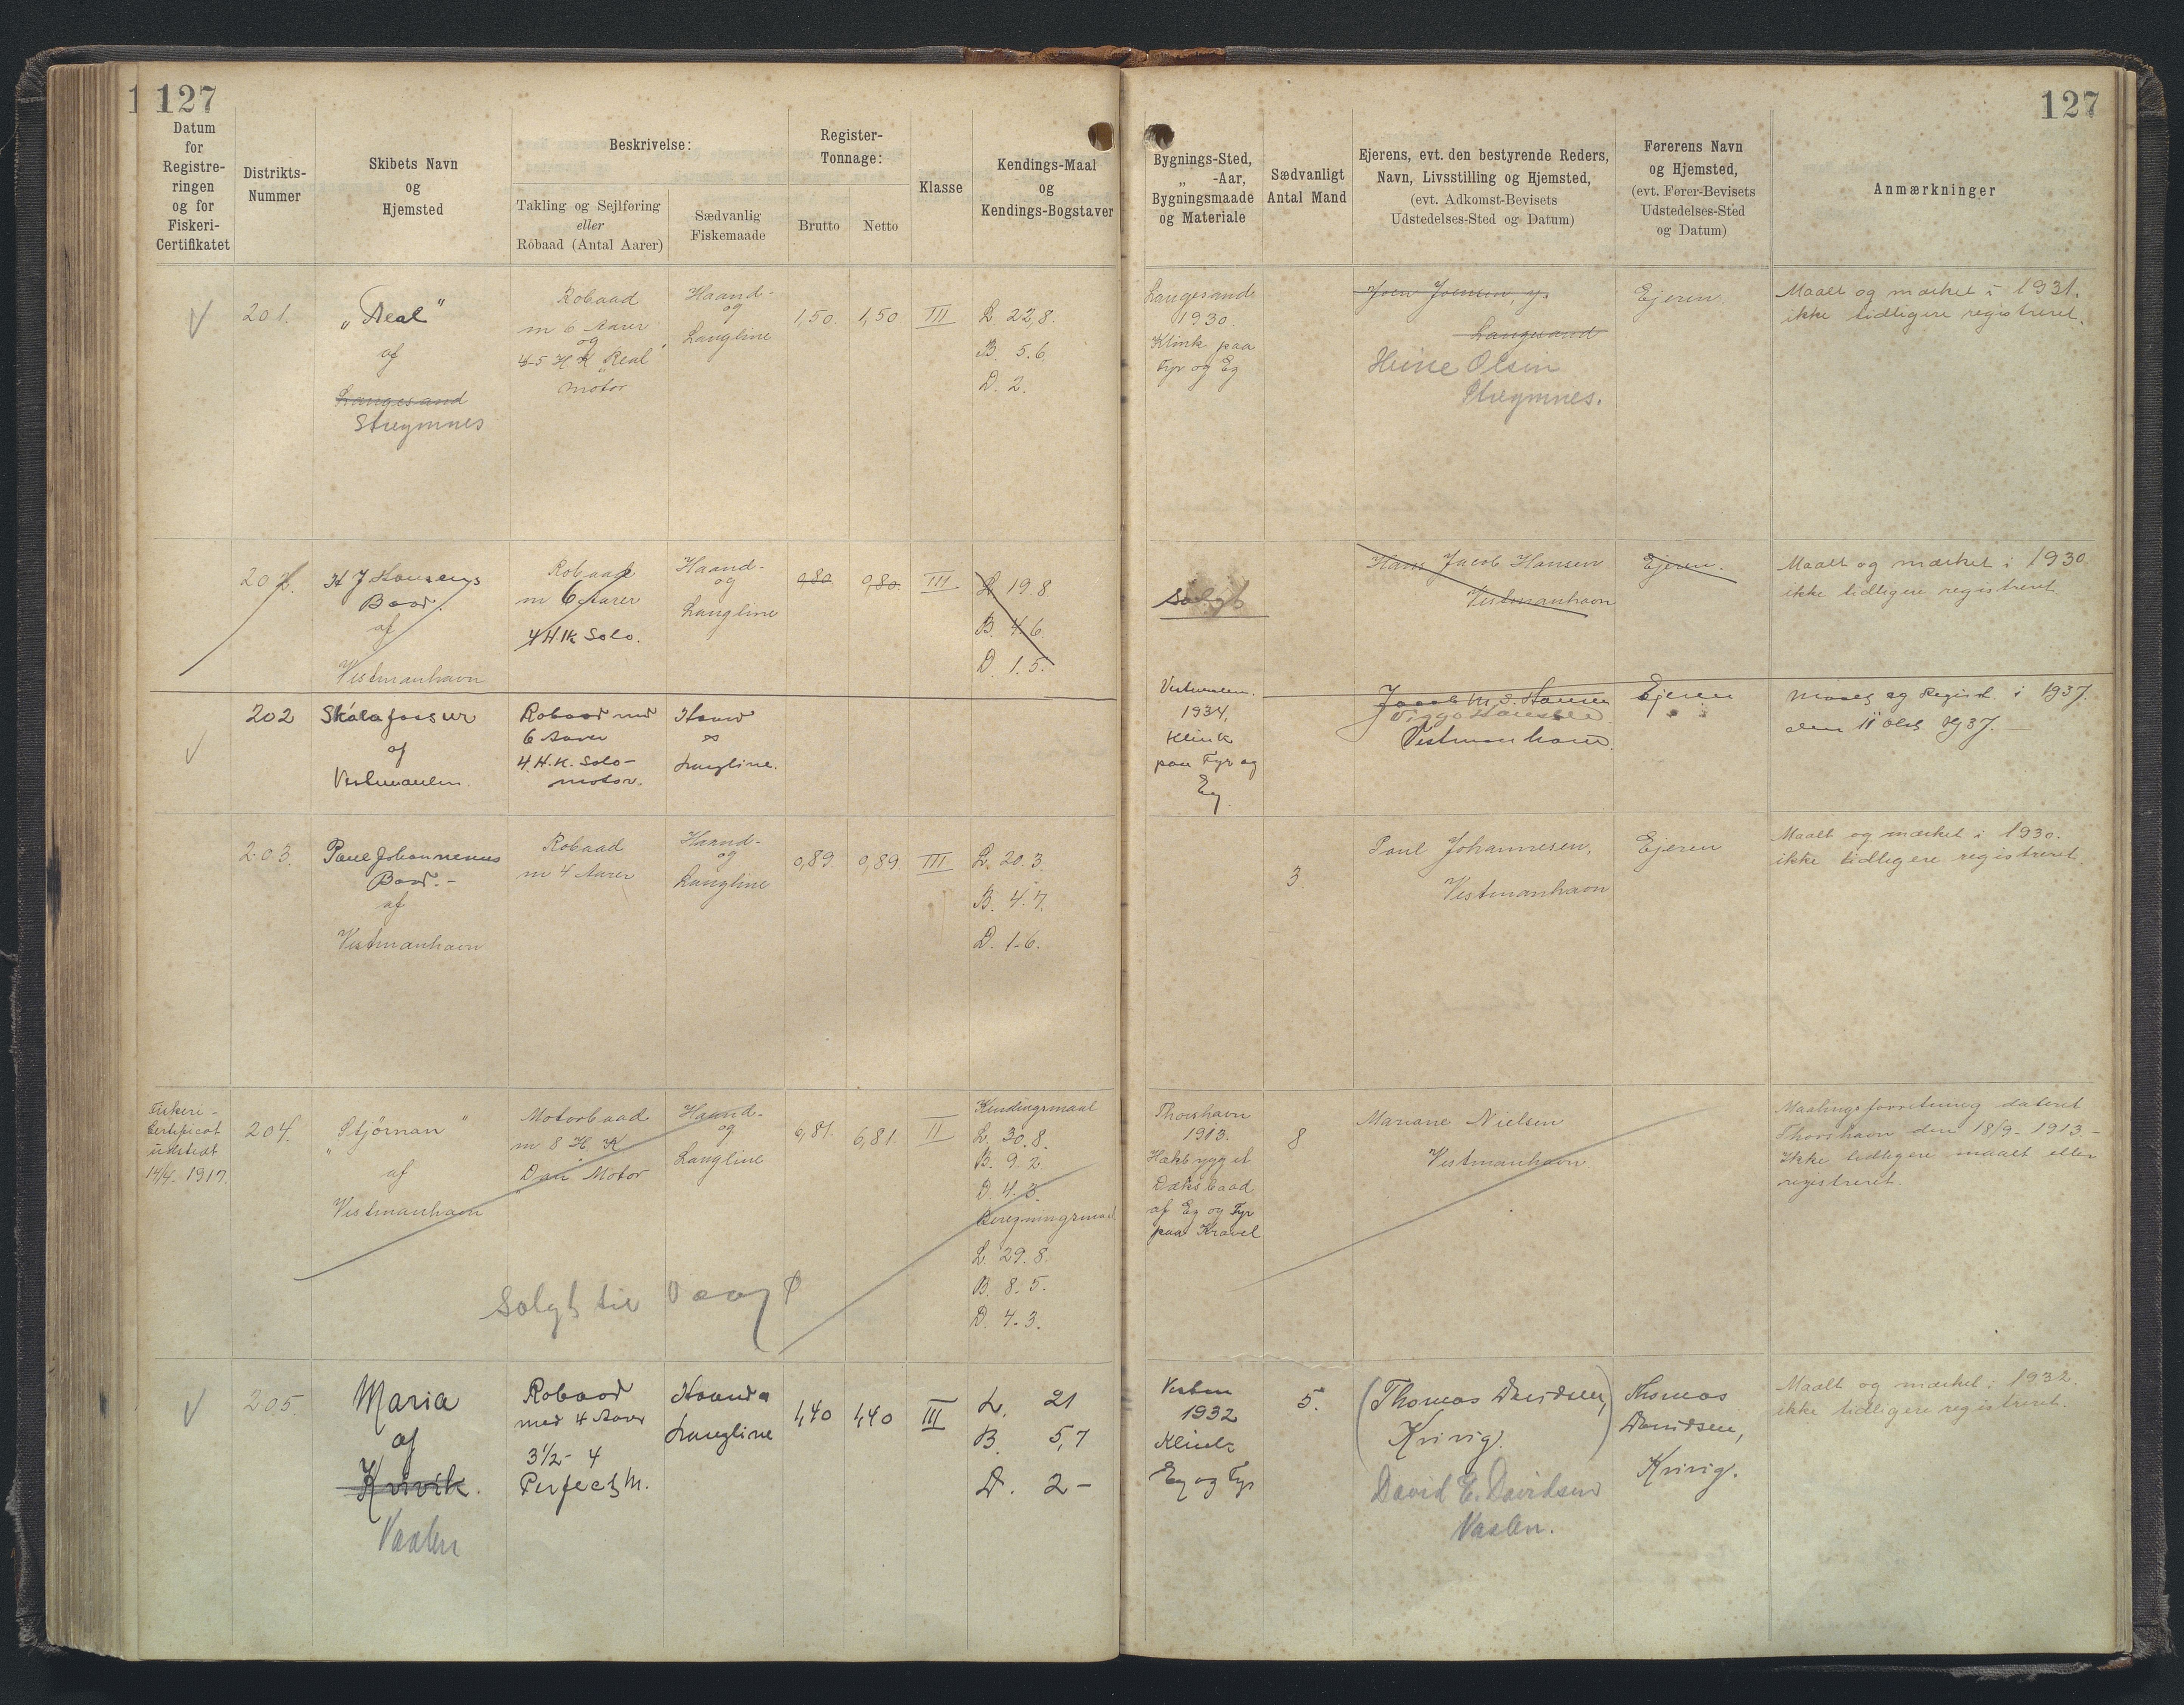 1 127
127
Datum
for
Registre-
ringen
og for
Fiskeri-
Certifikatet
Distrikts-
Nummer
Skibets Navn
og
Hjemsted
Beskrivelse:
Takling og Sejlføring
eller
Robaad (Antal Aarer)
Sædvanlig
Fiskemaade
Register-
Tonnage:
Brutto
Netto
Klasse
Kendings-Maal
og
Kendings-Bogstaver
Bygnings-Sted,
„ -Aar,
Bygningsmaade
og Materiale
Sædvanligt
Antal Mand
Ejerens, evt. den bestyrende Reders,
Navn, Livsstilling og Hjemsted,
(evt. Adkomst-Bevisets
Udstedelses-Sted og Datum)
Førerens Navn
og Hjemsted,
(evt. Fører-Bevisets
Udstedelses-Sted
og Datum)
Anmærkninger
201.
„Real"
af
Langesand
Streymnes
Robaad
m 6 Aarer
og
4-5 HK „Real"
motor
Haand-
og
Langline
1,50.
1,50
III
L 22,8.
B. 5.6.
D. 2.
Langesand
1930.
Klink paa
Fyr og Eg
Joen Joensen,
Langesand
Heine Olsen
Streymnes.
Ejeren.
Maalt og mærket i 1931.
ikke tidligere registreret.
202.
H J Hansens
Baad.
af
Vestmanhavn
Robaad
m 6 Aarer
4 H.K Solo.
Haand-
og
Langline
0,80
0,80.
III
L 19.8
B. 4.6.
D. 1.5.
Solgt
Hans Jacob Hansen
Vestmanhavn
Ejeren.
Maalt og mærket i 1930.
ikke tidligere registreret.
202
Skálafossur
af
Robaad med
6 Aarer
4 H.K. Solo-
motor.
Haand
Langline.
1934,
Klink
paa Fyr og
Eg.
Jacob M. S. Hansen
Viggo Hansen
Vestmanhavn.
Ejeren
Maalt og Regist. i 1937.
den 11 Okt 1937.
203.
Poul Johannesens
Baad.-
af
Vestmanhavn
Robaad
m 4 Aarer
Haand-
og
Langline
0,89.
0,89.
III
L. 20.3.
B. 4.7.
D. 1.6.
3.
Poul Johannesen,
Vestmanhavn
Ejeren
Maalt og mærket i 1930.
ikke tidligere registreret.
Fiskeri-
Certificat
udstedt
14/4-1917.
204.
„Stjørnan"
af
Vestmanhavn
Motorbaad
m 8 H K
Dan Motor
Haand-
og
Langline
6,81.
6,81.
II
Kendingsmaal
L. 30.8.
B. 9.2.
D. 4.3.
Beregningsmaal
L. 29.8.
B. 8.5.
D. 4.3.
Solgt til Vaag
Thorshavn
1913.
Hækbygget
Dæksbaad
af Eg og Fyr
paa Kravel
8
Mariane Nielsen
Vestmanhavn
Maalingsforretning dateret
Thorshavn den 18/9-1913.-
Ikke tidligere maalt eller
registreret.
205.
Maria
af
Kvivik.
Vaalen
Robaad
med 4 Aarer
3½- 4
Perfect M.
Haand &
Langline
1,40
1,40
III
L. 21
B. 5,7
D. 2-
1932
Klink
Eg og Fyr
5.
(Thomas Davidsen,
Kvivig.)
David E. Davidsen
Vaalen.
Thomas
Davidsen,
Kvivig.
Maalt og mærket i 1932.
ikke tidligere registreret.